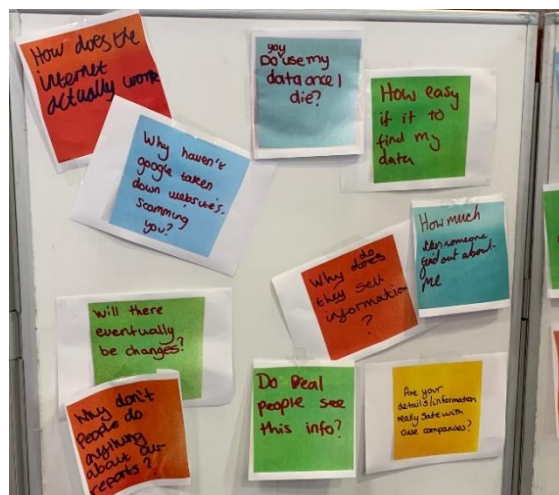 How does the
internet
actually work
you
Do use my
data once I
die?
How easy
if it to
find my
data
Why haven't
google taken
down website's
scamming
you?
How much
can someone
find out about
me
do
Why does
they sell
information
?
Will there
eventually
be changes?
Why don't
People do
anything
about our
reports?
Do Real
people see
this info?
Are your
details/information
really safe with
companies?